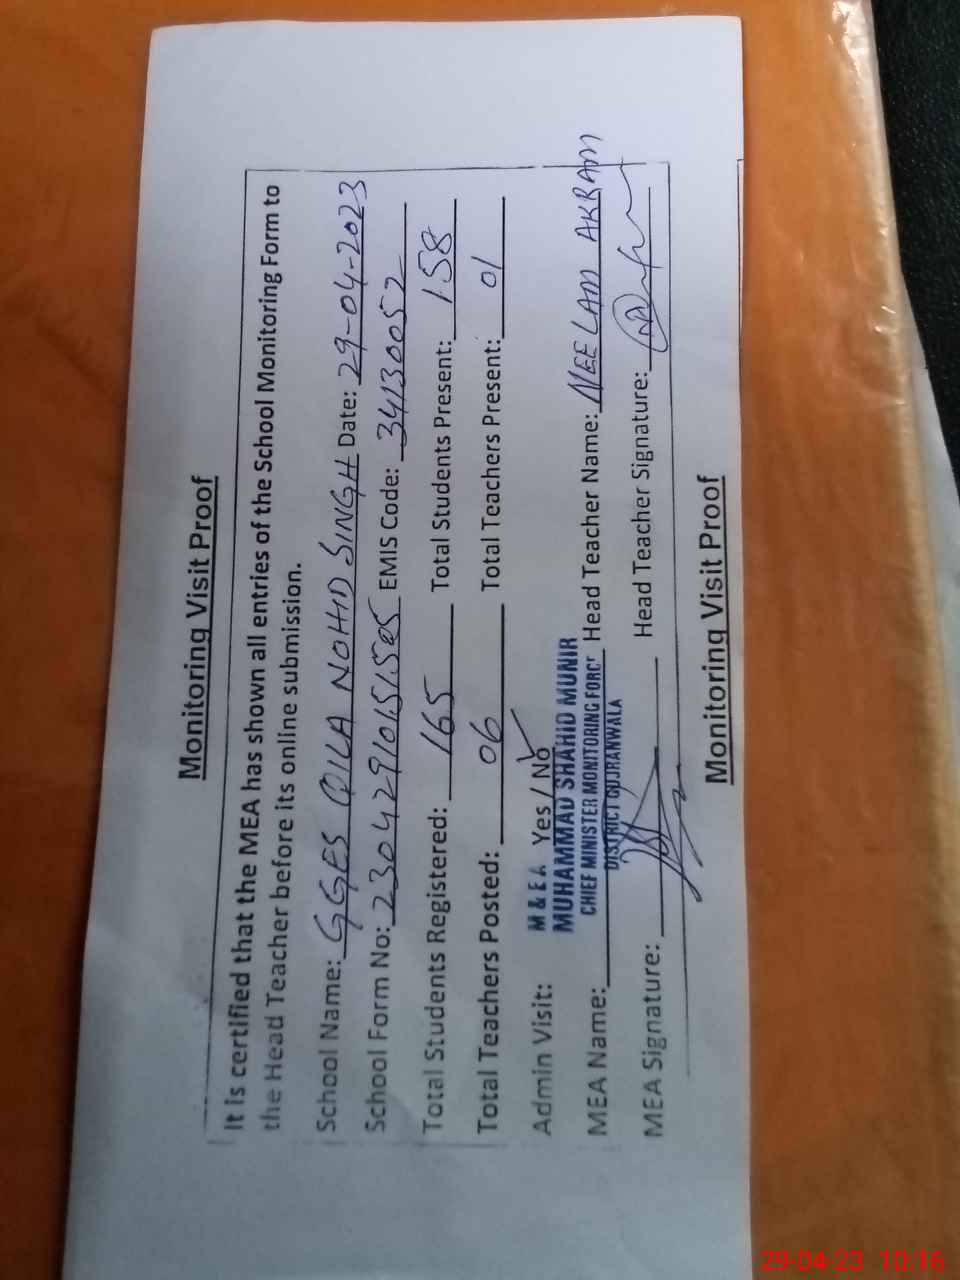 Monitoring Visit Proof
It is certified that the MEA has shown all entries of the School Monitoring Form to
the Head Teacher before its online submission.
School Name: GGES QILA NOHD SINGH Date: 29-04-2023
School Form No: 23042910151505 EMIS Code: 34130052
Total Students Registered: 165 Total Students Present: 158
Total Teachers Posted: 06 Total Teachers Present: 01
Admin Visit: Yes / No ✓
M & E A
MUHAMMAD SHAHID MUNIR
CHIEF MINISTER MONITORING FORCE
DISTRICT GUJRANWALA
MEA Name: Head Teacher Name: NEELAM AKRAM
MEA Signature: Head Teacher Signature:
Monitoring Visit Proof
29-04-23 10:16